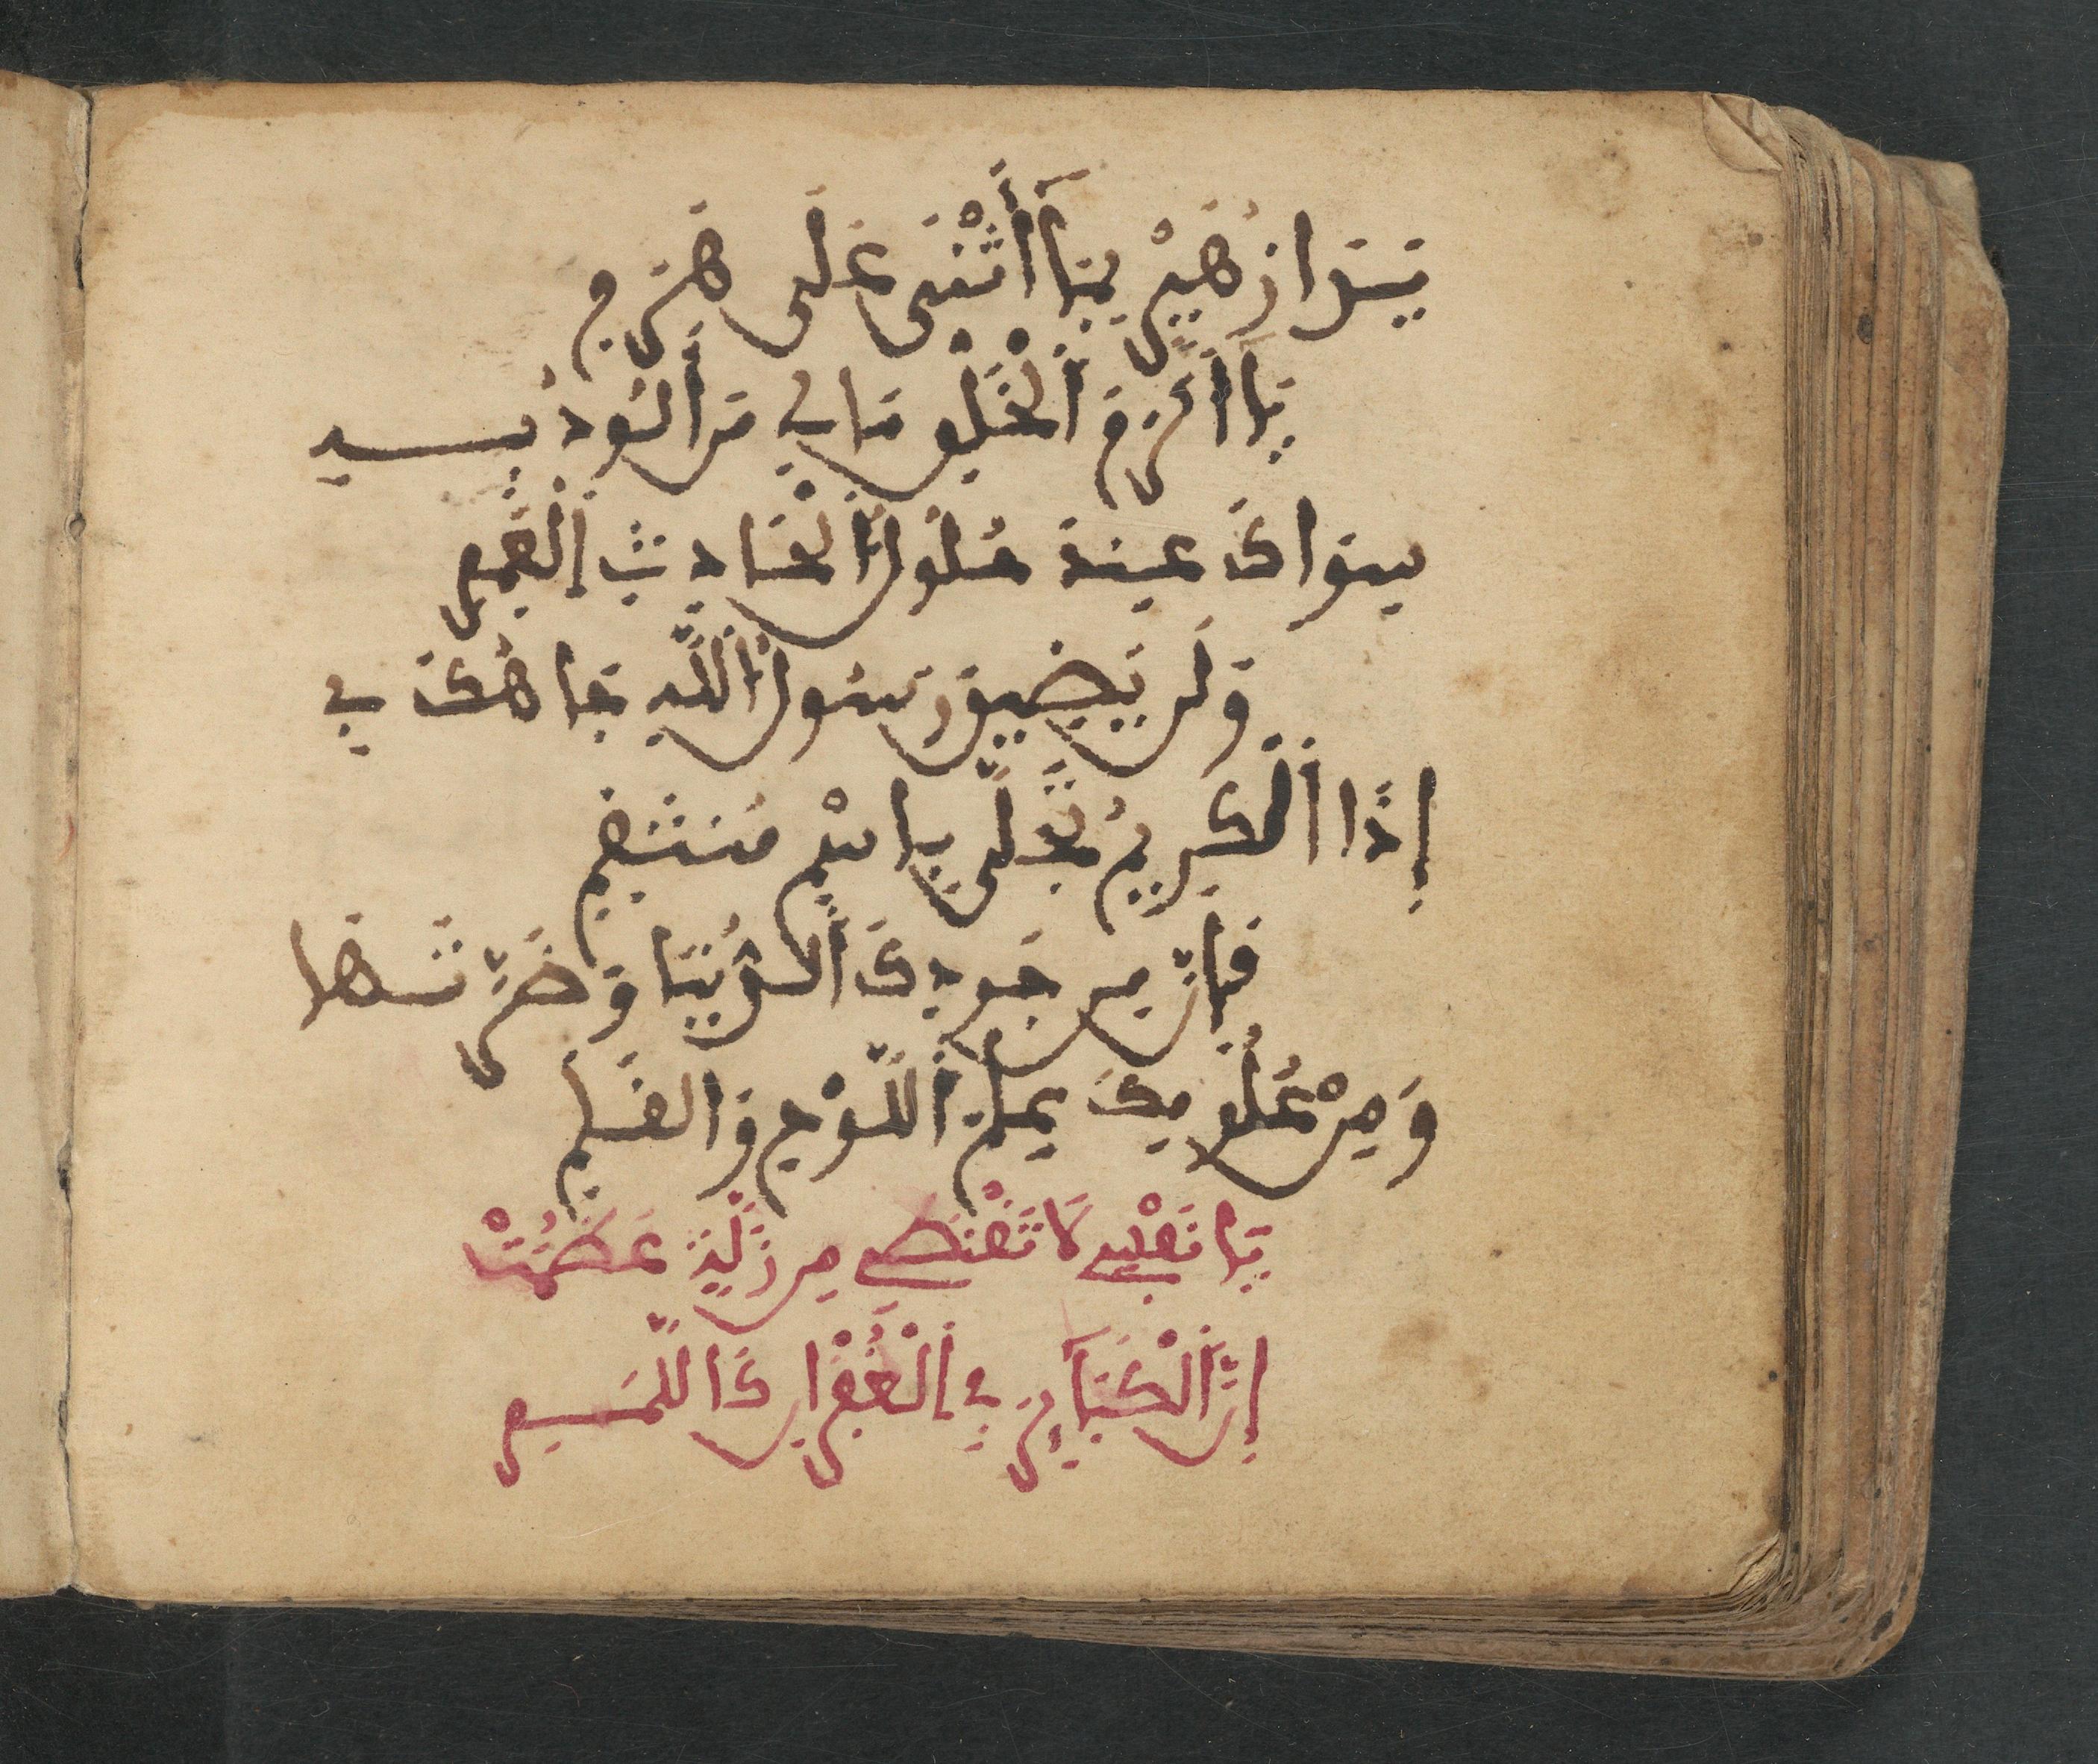 يَدَا زُهَيْرٍ بِمَآ أَثْنَى عَلَى هَرَمِ
يَآ أَكْرَمَ ٱلْخَلْقِ مَا لِي مَنْ أَلُوذُ بِهِ
سِوَاكَ عِنْدَ حُلُولِ ٱلْحَادِثِ ٱلْعَمِمِ
وَلَن يَضِيقَ رَسُولَ ٱللَّهِ جَاهُكَ بِي
إِذَا ٱلْكَرِيمُ تَجَلَّى بِاسْمِ مُنتَقِمِ
فَإِنَّ مِن جُودِكَ ٱلدُّنْيَا وَضَرَّتَهَا
وَمِنْ عُلُومِكَ عِلْمَ ٱللَّوْحِ وَالْقَلَمِ
يَا نَفْسِي لَا تَقْنَطِي مِن زَلَّةٍ عَظُمَتْ
إِنَّ ٱلْكَبَآئِرَ فِي ٱلْغُفْرَانِ كَاللَّمَمِ